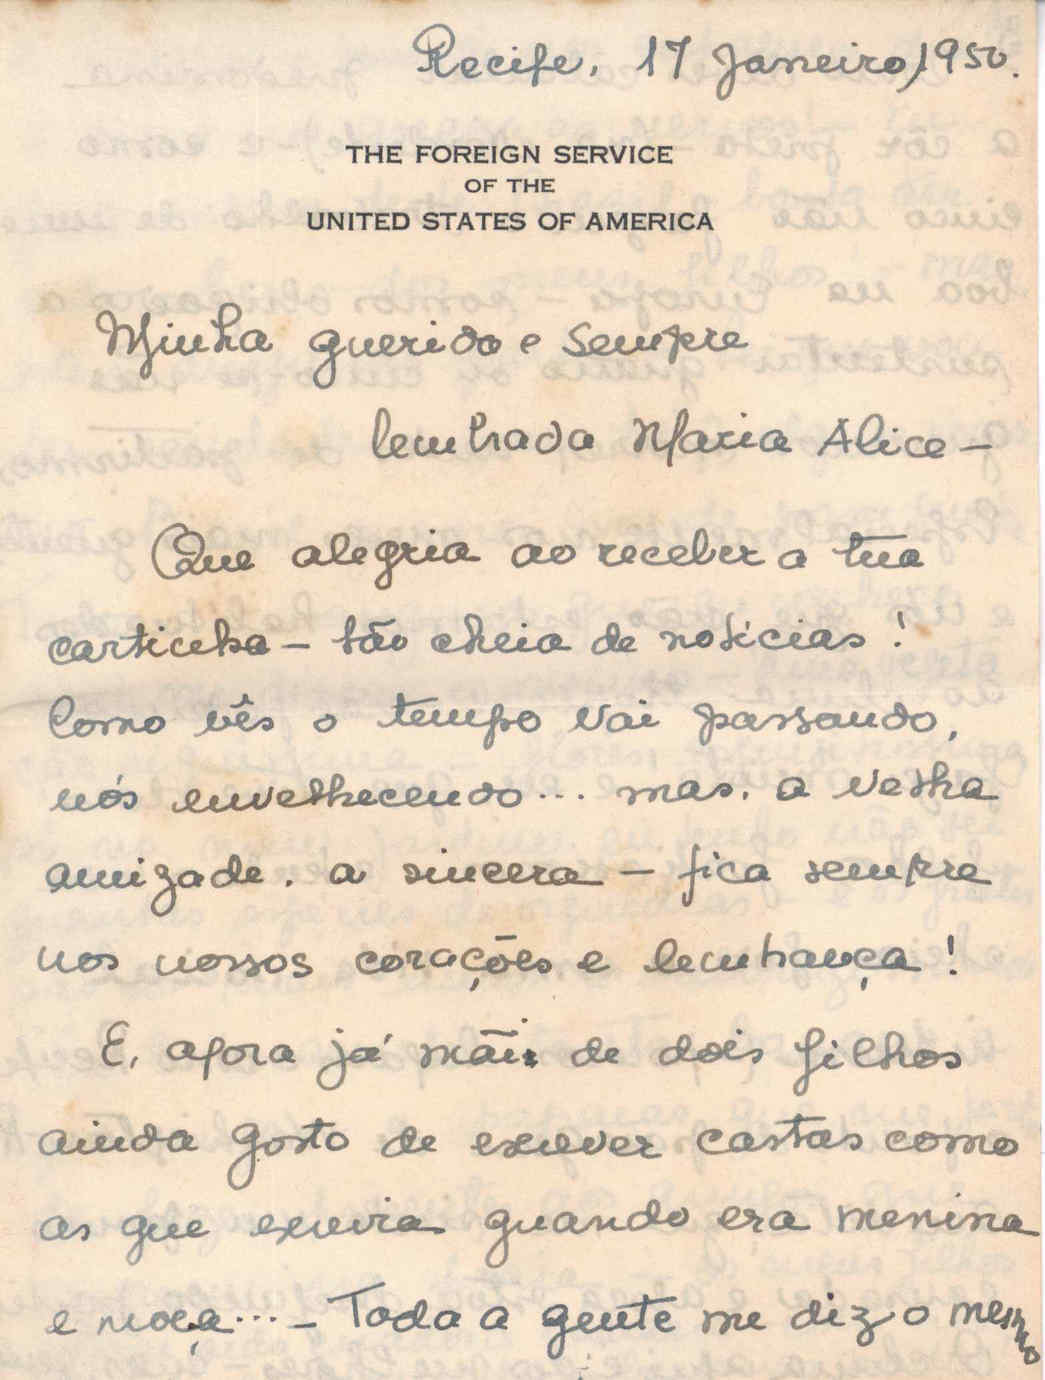 Recife, 17 Janeiro, 1950.
THE FOREIGN SERVICE
OF THE
UNITED STATES OF AMERICA
Minha querida e sempre
lembrada Maria Alice –
Que alegria ao receber a tua
cartinha – tão cheia de noticias !
Como vês o tempo vai passando,
nós envelhecendo... mas. a velha
amizade. a sincera – fica sempre
nos nossos corações e lembrança !
E, agora já mãi de dois filhos
ainda gosto de escrever cartas como
as que escrevia quando era menina
e moça... – Toda a gente me diz o mesmo